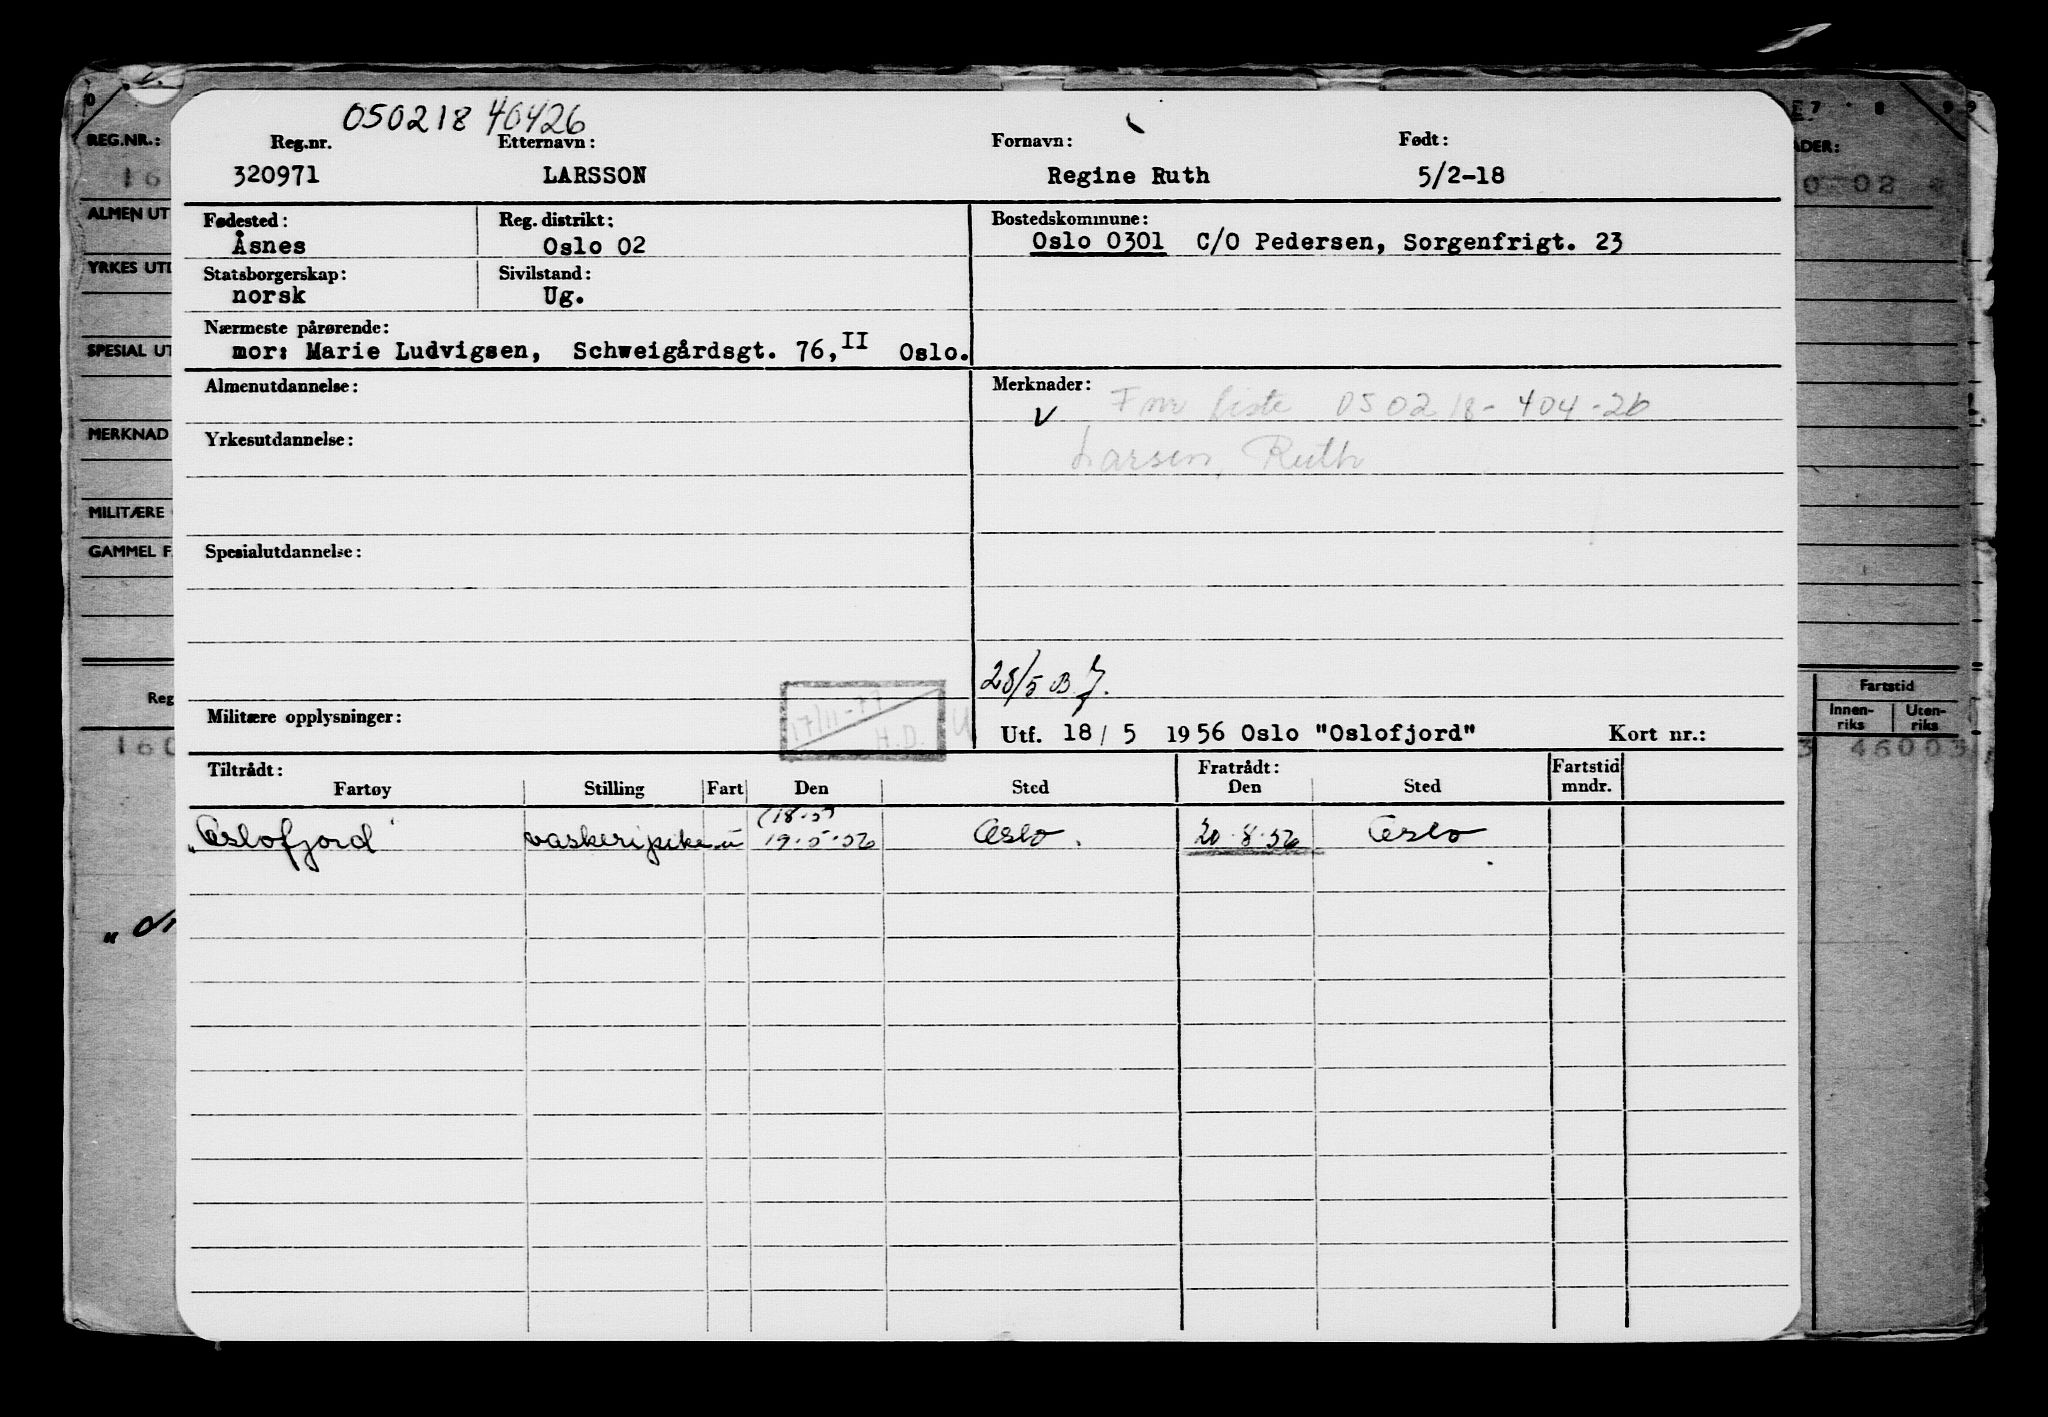 050218 40426
Reg.nr. Etternavn: Fornavn: Født:
320971 LARSSON Regine Ruth 5/2-18
Fødested: Reg. distrikt: Bostedskommune:
Åsnes Oslo 02 Oslo 0301 C/O Pedersen, Sorgenfrigt. 23
Statsborgerskap: Sivilstand:
norsk Ug.
Nærmeste pårørende:
mor: Marie Ludvigsen, Schweigårdsgt. 76, II Oslo.
Almenutdannelse: Merknader:
V Fnr liste 050218-404-26
Yrkesutdannelse:
Larsen, Ruth
Spesialutdannelse:
28/5 B.J.
17/11-77
H.D.
Militære opplysninger:
Utf. 18/5 1956 Oslo "Oslofjord" Kort nr.:
Tiltrådt: Fratrådt: Fartstid
Fartøy Stilling Fart Den Sted Den Sted mndr.
(18.5)
"Oslofjord" vaskeripike u 19.5.56 Oslo. 20.8.56 Oslo.
REG.NR.:
16
ALMEN UT
YRKES UTD
SPESIAL UT
MERKNAD
MILITÆRE
GAMMEL F
Reg
160
7 8 9
ADER:
0 02
Fartstid
Innen-riks Uten-riks
3 46003